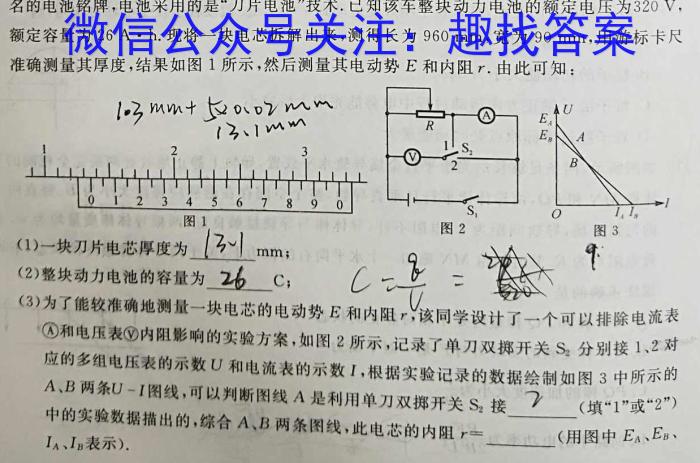 名的电池铭牌,电池采用的是“刀片电池”技术.已知该车整块动力电池的额定电压为320 V,
额定容量为26 A·h.现将一块电芯拆解出来,测得长为 960 mm,宽为 90 mm,用游标卡尺
微信公众号关注：趣找答案
准确测量其厚度,结果如图 1 所示,然后测量其电动势 E 和内阻 r.由此可知:
13.1mm
1 2 3
0 1 2 3 4 5 6 7 8 9 0
图 1
R A V 1 2 S₂ S₁
图 2
U E_A E_B A B O I_A I_B I
图 3
(1)一块刀片电芯厚度为 13.1 mm;
(2)整块动力电池的容量为 26 C;
(3)为了能较准确地测量一块电芯的电动势 E 和内阻 r,该同学设计了一个可以排除电流表
Ⓐ和电压表Ⓥ内阻影响的实验方案,如图 2 所示,记录了单刀双掷开关 S₂ 分别接 1、2 对
应的多组电压表的示数 U 和电流表的示数 I,根据实验记录的数据绘制如图 3 中所示的
A、B 两条U-I图线,可以判断图线 A 是利用单刀双掷开关 S₂ 接 2 (填“1”或“2”)
中的实验数据描出的,综合 A、B 两条图线,此电芯的内阻 r= (用图中 E_A、E_B、
I_A、I_B表示).